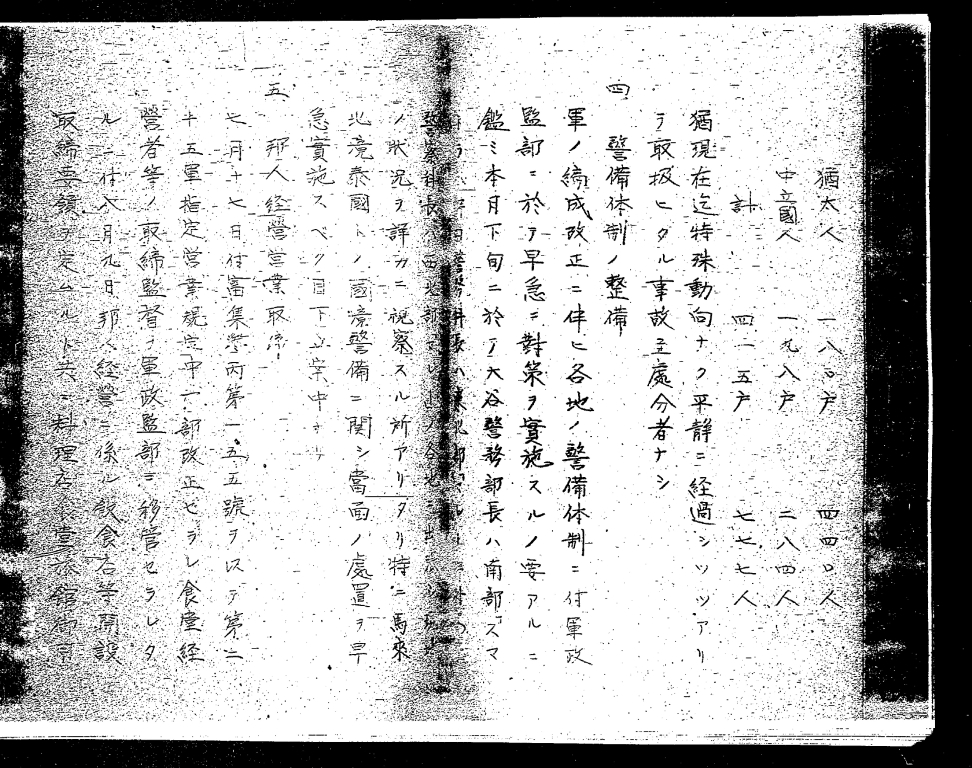 猶太人 一八〇戸 四四〇人
中立國人 一九八戸 二八四人
計 四一五戸 七七七人
猶現在迄特殊動向ナク平静ニ経過シツツアリ
テ取扱ヒタル事故主處分者ナシ
四 警備体制ノ整備
軍ノ編成改正ニ伴ヒ各地ノ警備体制ニ付軍政
監部ニ於テ早急ニ對策ヲ實施スルノ要アルニ
鑑ミ本月下旬ニ於テ大谷警務部長ハ南部スマ
警務科長ハ
ノ状況ヲ詳カニ視察スル所アリタリ特ニ馬來
北境泰國トノ國境警備ニ関シ當面ノ處置ヲ早
急實施スベク目下立案中ナリ
五 邦人経営営業取締
七月十七日付富集参丙第一五五號ヲ以テ第二
十五軍指定営業規定中一部改正セラレ食堂経
営者等ノ取締監督ヲ軍政監部ニ移管セラレタ
ルニ付六月九日邦人経営ニ係ル飲食店等開設
取締要領ヲ定ムルト共ニ料理店食堂旅館